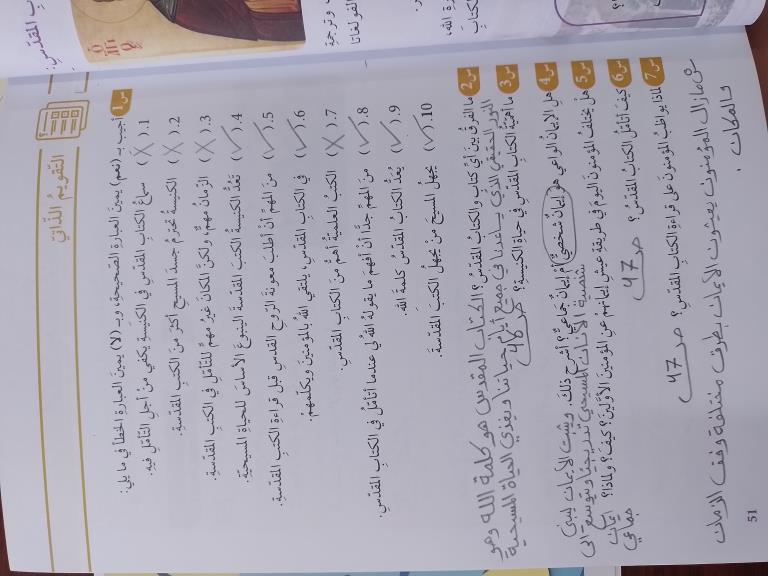 التقويم الذاتي
س1 أجيب بـ (نعم) يمينَ العبارة الصّحيحة، وبـ (لا) يمينَ العبارة الخطأ في ما يلي:
1. (X) سماعُ الكتاب المقدّسِ في الكنيسة يكفي من أجل التأمّل فيه.
2. (X) الكنيسةُ تُكرّمُ جسدَ المسيح أكثرَ من الكتب المقدّسة.
3. (X) الزّمانُ مهمٌّ، ولكنَّ المكانَ غيرُ مهمٍّ للتأمّلِ في الكتب المقدّسة.
4. (✓) تَعُدُّ الكنيسةُ الكتبَ المقدّسةَ الينبوعَ الأساسَ للحياة المسيحيّة.
5. (✓) منَ المهمِّ أنْ أطلبَ معونةَ الرّوحِ القدسِ قبل قراءةِ الكتب المقدّسة.
6. (✓) في الكتاب المقدّس، يلتقي اللهُ بالمؤمنينَ ويكلّمهم.
7. (X) الكتبُ العلميّةُ أهمُّ منَ الكتاب المقدّس.
8. (✓) منَ المهمِّ جدًّا أنْ أفهمَ ما يقولهُ اللهُ لي عندما أتأمّلُ في الكتاب المقدّس.
9. (✓) يُعَدُّ الكتابُ المقدّسُ كلمةَ الله.
10. (✓) يجهلُ المسيحَ منْ يجهلُ الكتبَ المقدّسة.
س2 ما الفرقُ بينَ أيِّ كتابٍ والكتاب المقدّس؟ الكتاب المقدس هو كلمة الله وهو
النور الحقيقي الذي يساعدنا في جميع أيام حياتنا ويغذي الحياة المسيحية
س3 ما أهمّيّةُ الكتاب المقدّس في حياة الكنيسة؟ ص 46
س4 هلِ الإيمانُ الواعي هو إيمانٌ شخصيٌّ أمْ إيمانٌ جماعيٌّ؟ أشرحُ ذلكَ. ويثبت الايمان ليبني
شخصية الانسان المسيحي تدريجيا ويتوسع الى
ايمان جماعي
س5 هلْ يختلفُ المؤمنونَ اليومَ في طريقةِ عيشِ إيمانِهمْ عنِ المؤمنينَ الأوّلينَ؟ كيفَ؟ ولماذا؟
س6 كيفَ أتأمّلُ الكتابَ المقدّسَ؟ ص 47
س7 لماذا يواظبُ المؤمنونَ على قراءةِ الكتاب المقدّس؟ ص 47
س5 مازال المؤمنون يعيشون الايمان بطرق مختلفة وفق الزمان
والمكان.
51